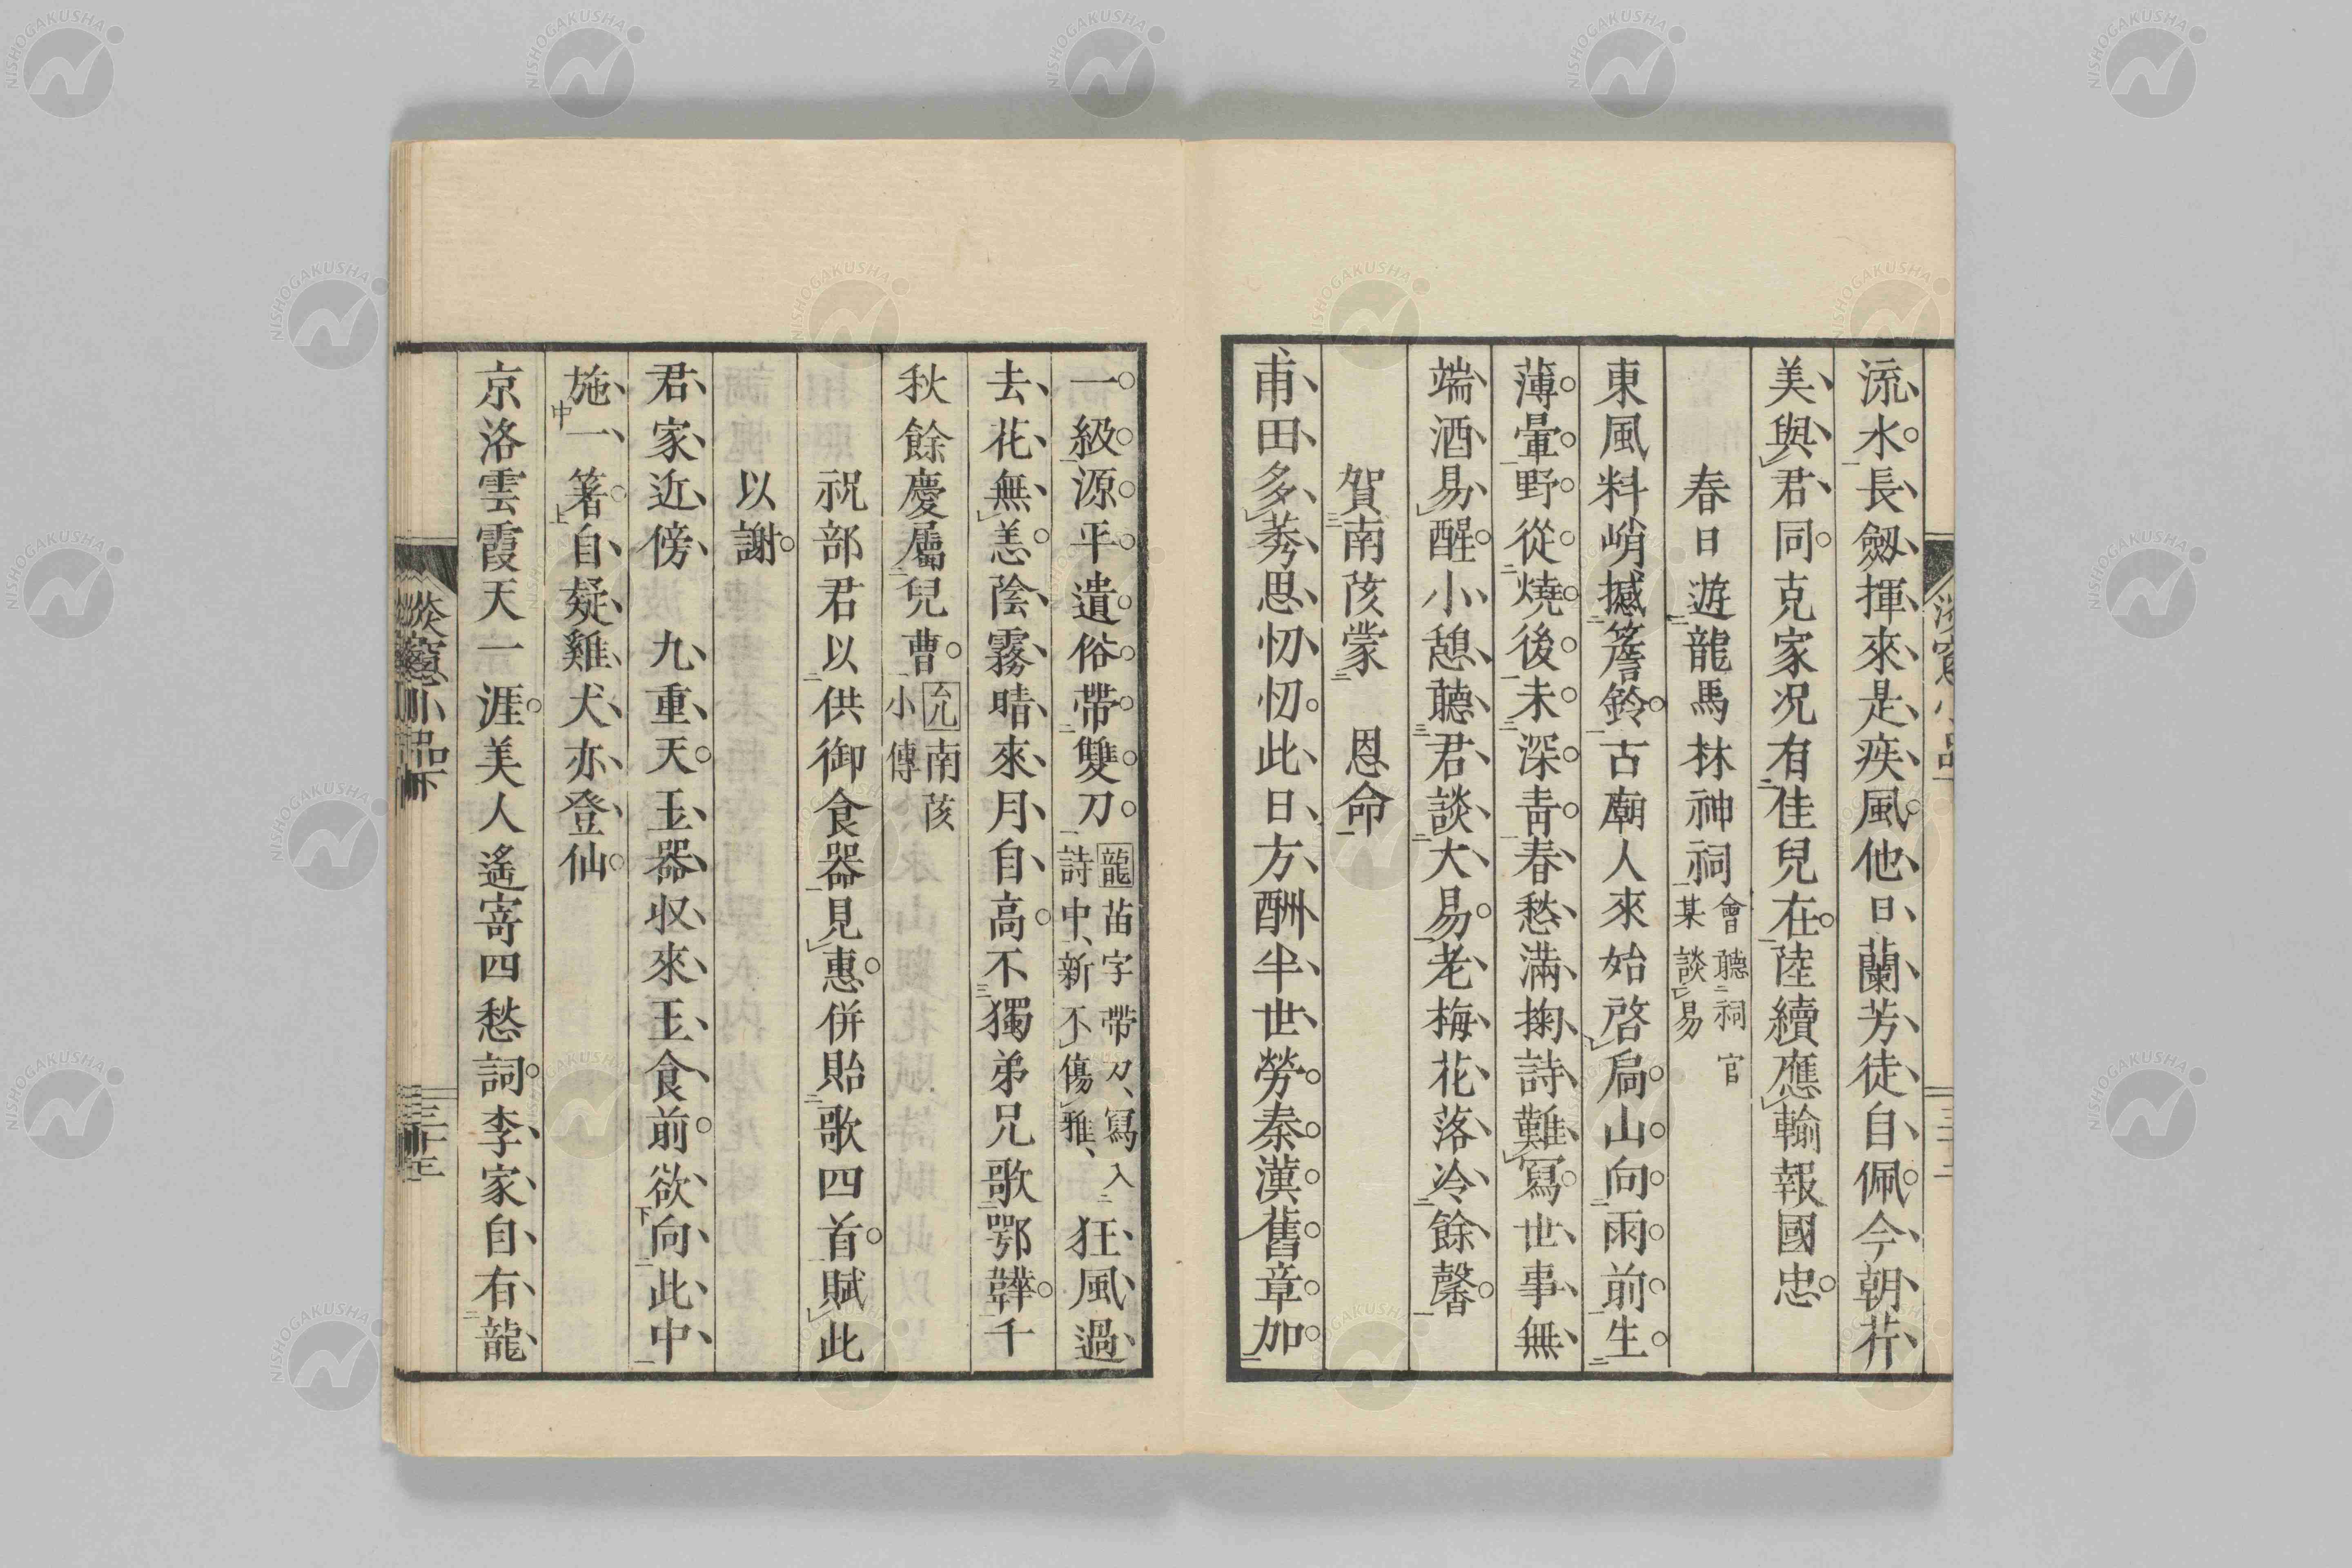 流水長劔揮來是疾風他日蘭芳徒自佩今朝芥
美與君同克家況有佳兒在陸續應輸報國忠
春日遊龍馬林神祠會聽祠官某談易
東風料峭撼簷鈴古廟人來始啓扃山向雨前生
薄暈野從燒後未深靑春愁滿掬詩難寫世事無
端酒易醒小憩聽君談大易老梅花落冷餘馨
賀南荄蒙 恩命
甫田多莠思忉忉此日方酬半世勞秦漢舊章加
一級源平遺俗帶雙刀龍苗字帶刀、寫入詩中、新不傷雅、狂風過
去花無恙陰霧晴來月自高不獨弟兄歌鄂韡千
秋餘慶屬兒曹允南荄小傳
祝部君以供御食器見惠併貽歌四首賦此
以謝
君家近傍 九重天玉器収來玉食前欲向此中
施一箸自疑雞犬亦登仙
京洛雲霞天一涯美人遙寄四愁詞李家自有龍
小品下
三十三
NISHOGAKUSHA